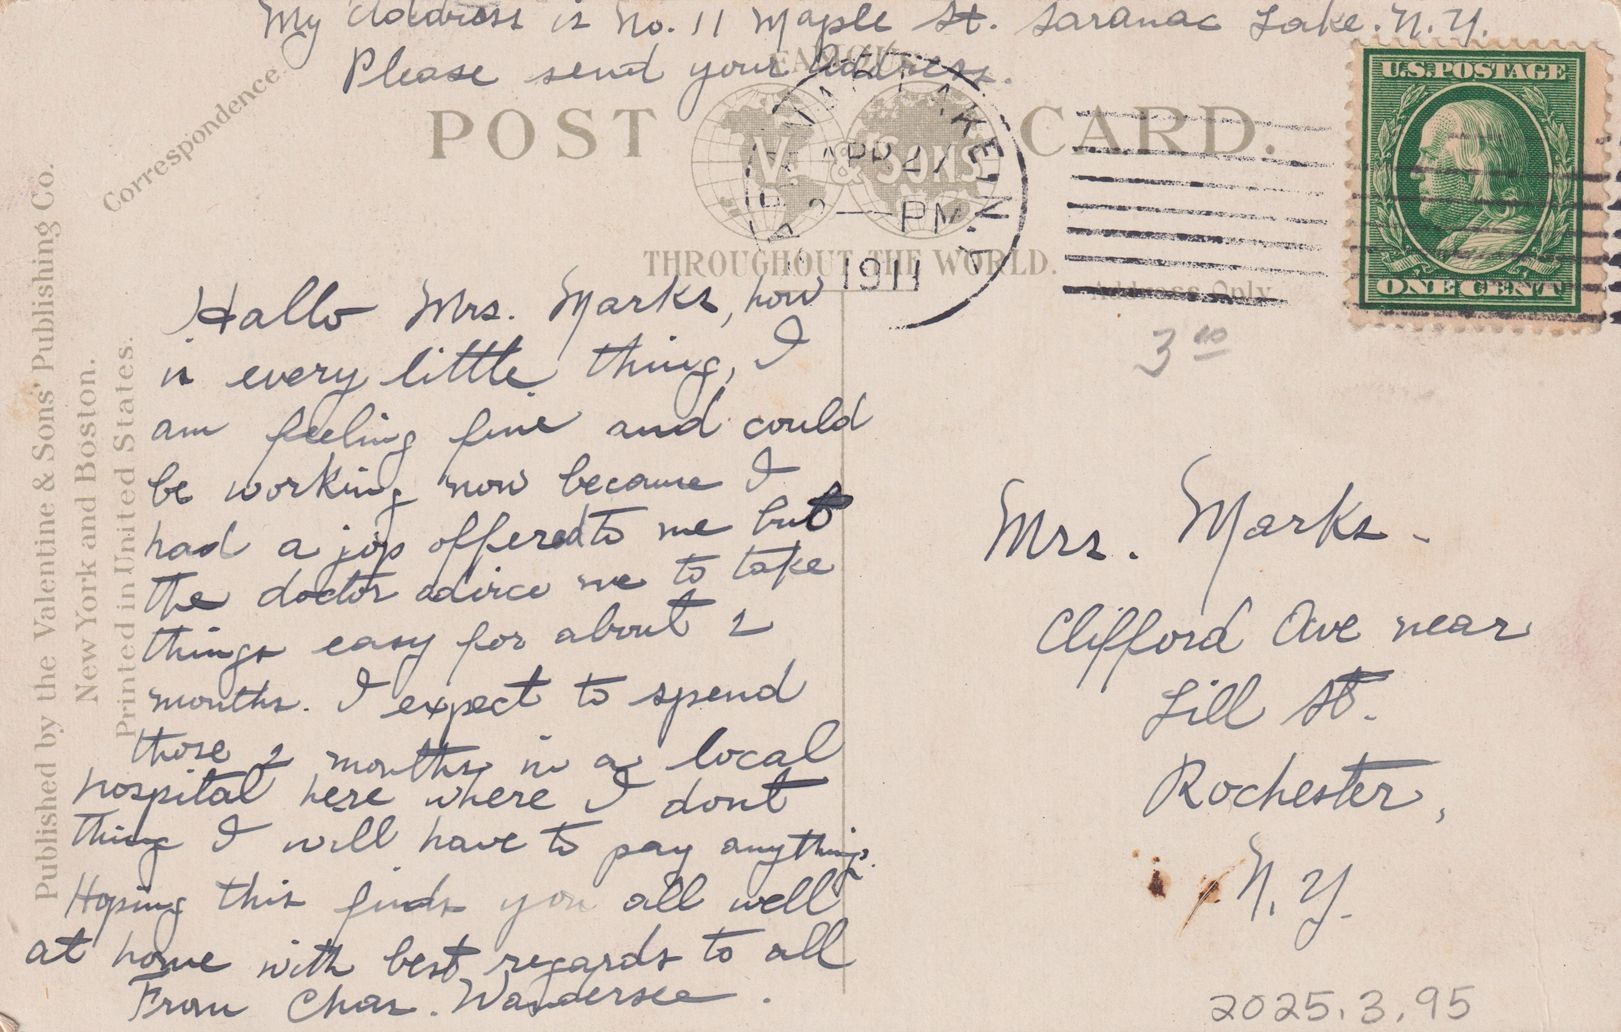 My Address is No. 11 Maple St. Saranac Lake. N.Y.
Please send your Address.
Correspondence.
FAMOUS
POST CARD.
V & SONS
THROUGHOUT THE WORLD.
Address Only
SARANAC LAKE, N.Y.
APR
PM
1911
U.S. POSTAGE
ONE CENT
3 00
Published by the Valentine & Sons' Publishing Co.
New York and Boston.
Printed in United States.
Hallo Mrs. Marks, how
is every little thing, I
am feeling fine and could
be working now because I
had a job offered to me but
the doctor advice me to take
things easy for about 2
months. I expect to spend
those 2 months in a local
hospital here where I dont
thing I will have to pay anything.
Hoping this finds you all well
at home with best regards to all
From Chas. Wandersee.
Mrs. Marks.
Clifford Ave near
Lill St.
Rochester,
N.Y.
2025.3.95